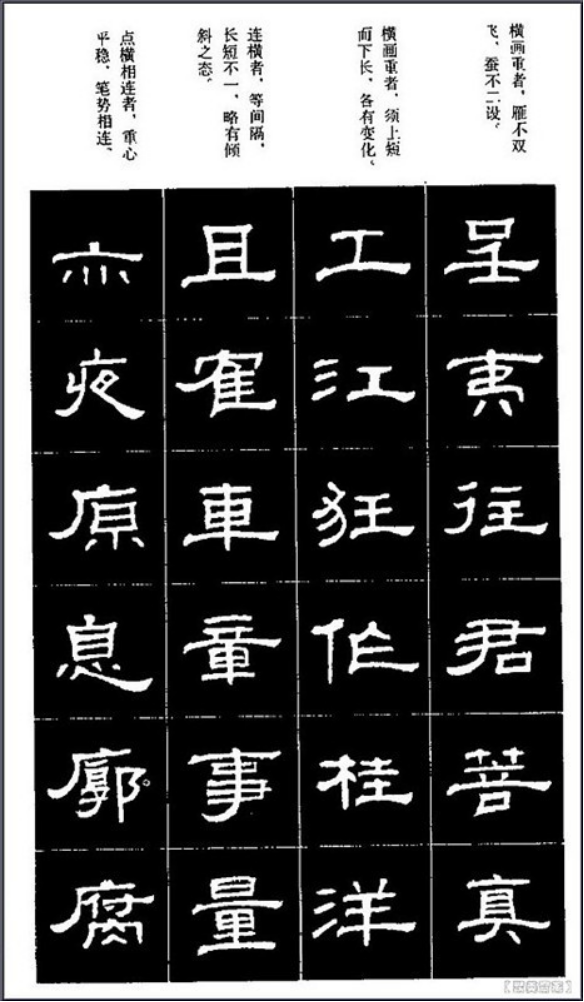 横画重者，雁不双
飞，蚕不二设。
横画重者，须上短
而下长，各有变化。
连横者，等间隔，
长短不一，略有倾
斜之态。
点横相连者，重心
平稳，笔势相连。
呈夷往君菩真
工江狂作桂洋
且隺車章事量
亦夜原息廓腐